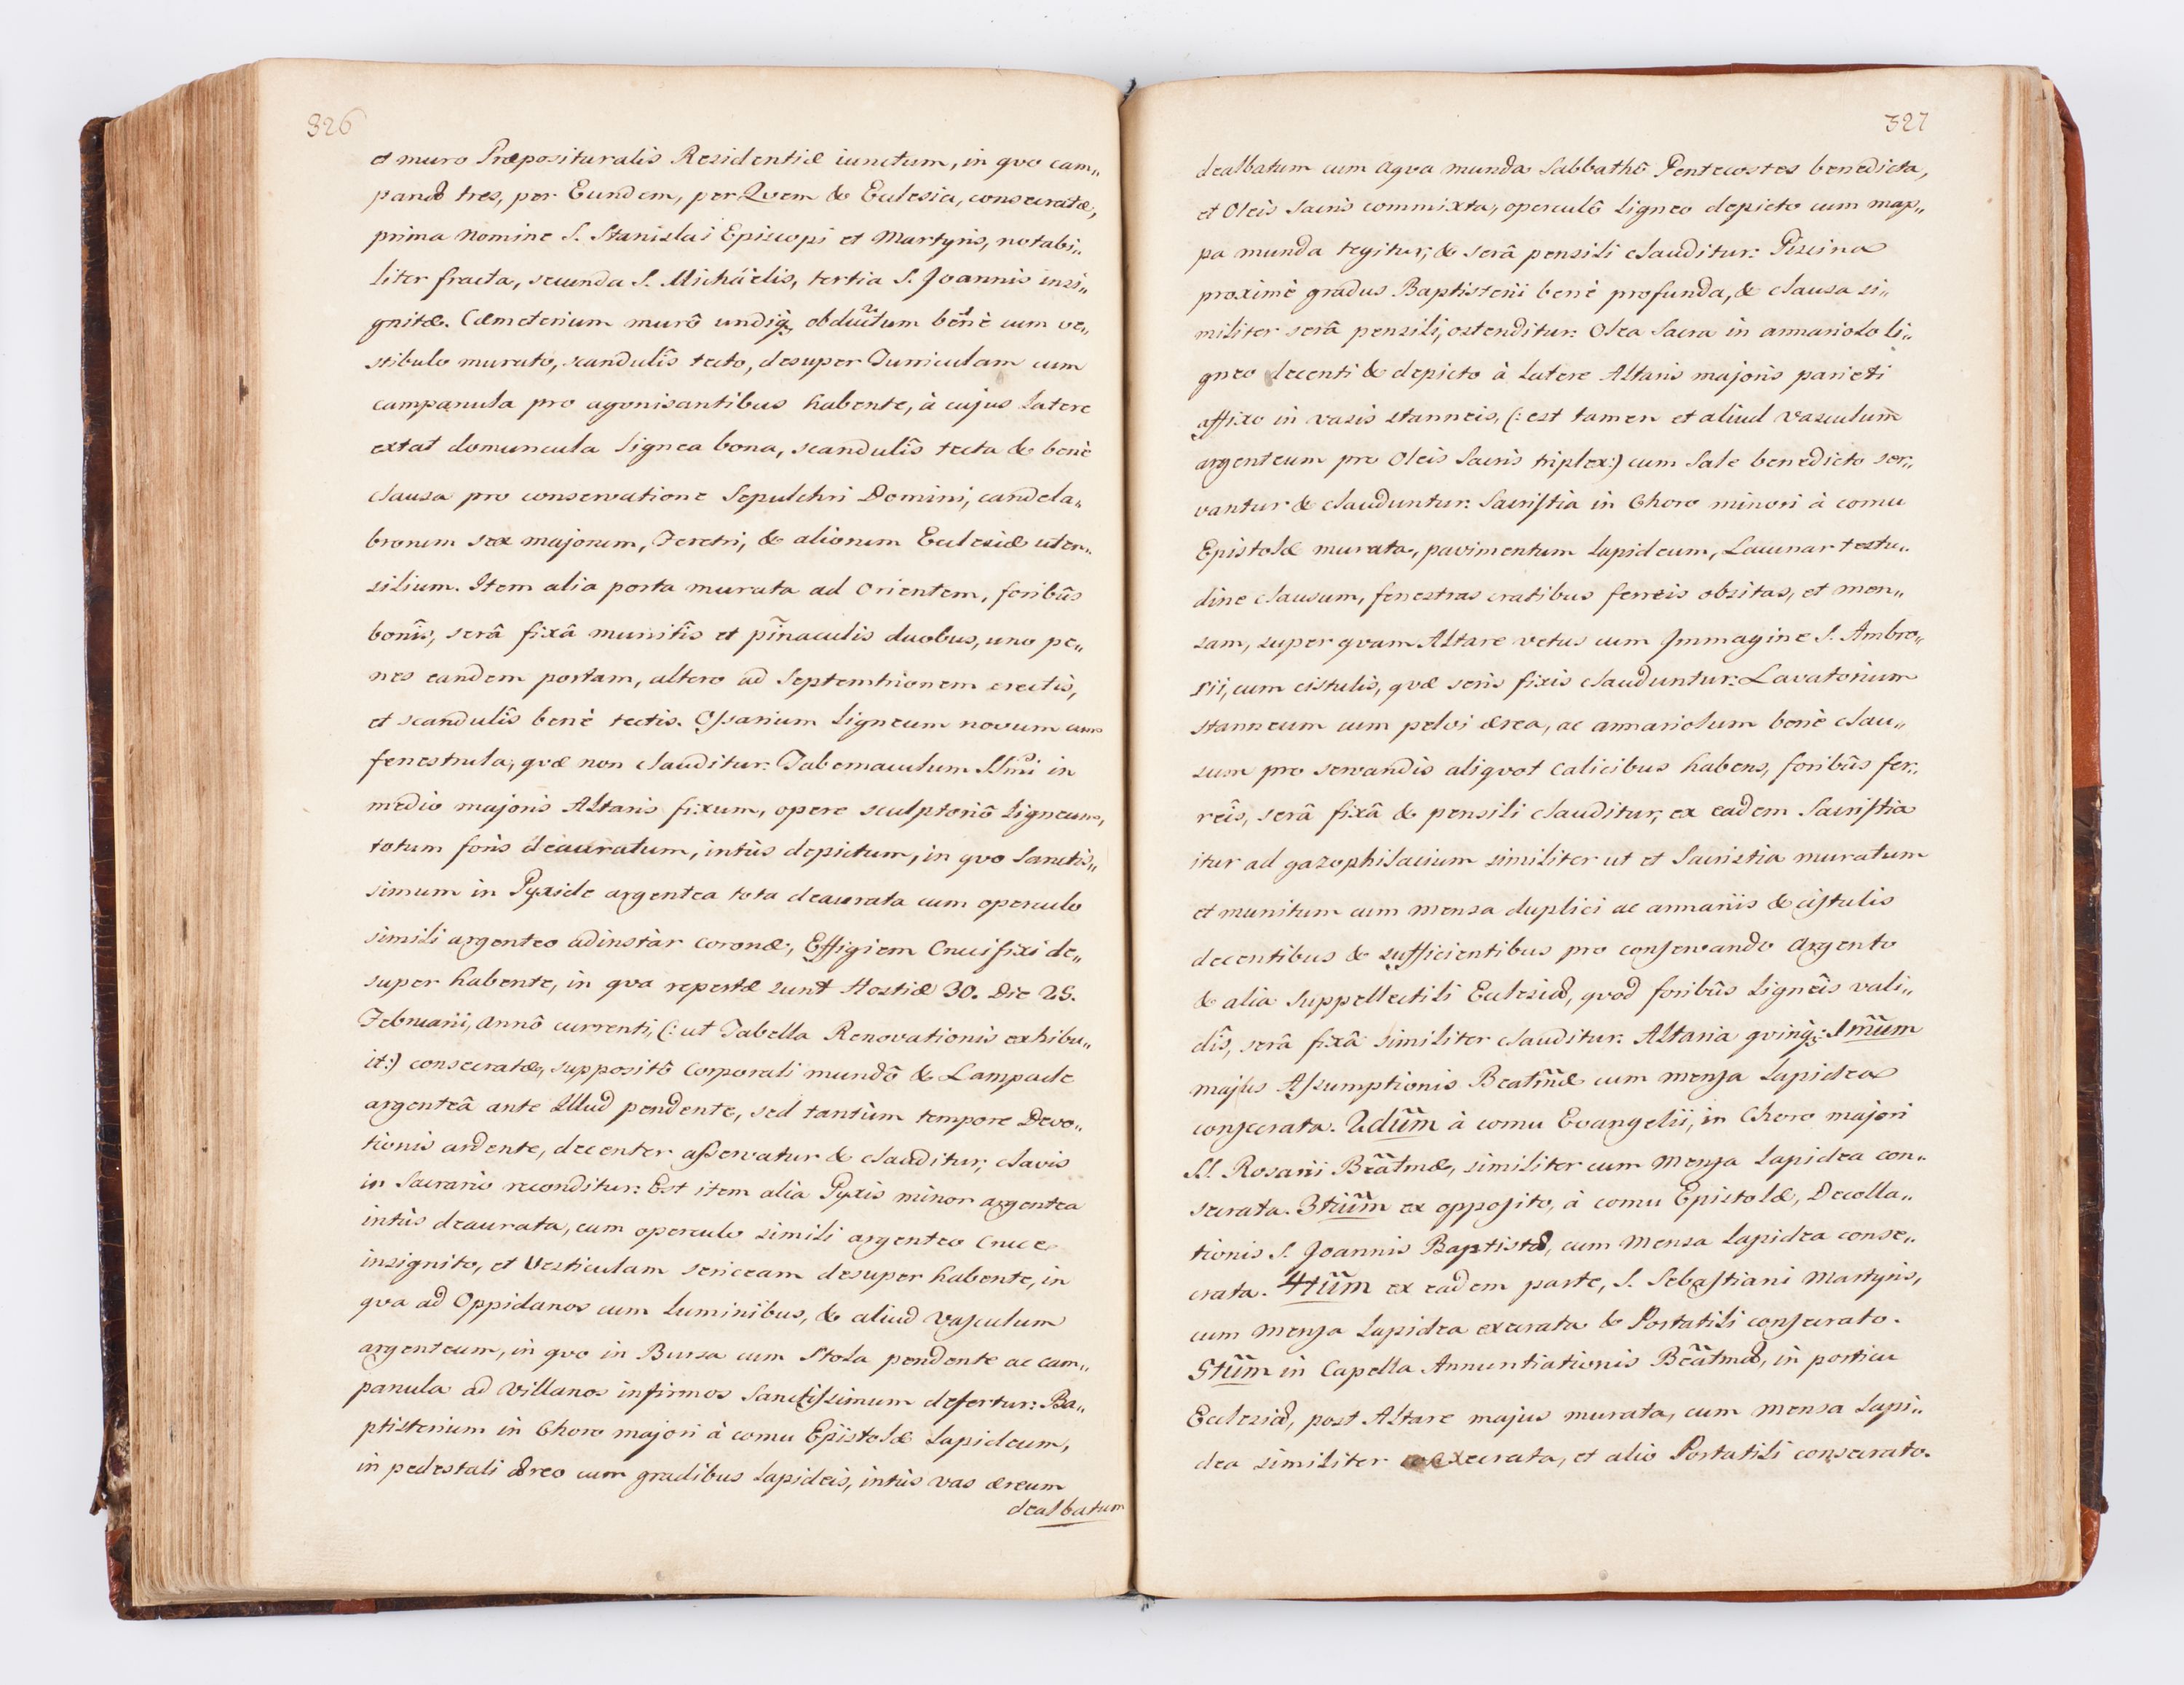 326
et muro Præposituralis Residentiæ iunctum, in qvo cam„
panæ tres, per Eundem, per Qvem & Ecclesia, consecratæ,
prima Nomine S. Stanislai Episcopi et Martyris, notabi„
liter fracta, secunda S. Michäelis, tertia S. Joannis insi„
gnitæ. Cæmeterium murô undiq; obductum benè cum ve„
stibulo murato, scandulîs tecto, desuper Turriculam cum
campanula pro agonisantibus habente, à cujus latere
extat domuncula lignea bona, scandulîs tecta & benè
clausa pro conservatione Sepulchri Domini, candela„
brorum sex majorum, Feretri, & aliorum Ecclesiæ uten„
silium. Item alia porta murata ad Orientem, foribûs
bonîs, serâ fixâ munitîs et pinaculis duobus, uno pe„
nes eandem portam, altero ad Septemtrionem erectis,
et scandulîs benè tectis. Ossarium Ligneum novum cum
fenestrula, qvæ non clauditur: Tabernaculum SSmi in
medio majoris Altaris fixum, opere sculptoriô Ligneum,
totum foris deauratum, intùs depictum, in qvo Sanctis„
simum in Pyxide argentea tota deaurata cum operculo
simili argenteo adinstàr coronæ, Effigiem Crucifixi de„
super habente, in qva repertæ sunt Hostiæ 30. Die 25.
Februarii, Annô currenti, (: ut Tabella Renovationis exhibu„
it:) consecratæ, suppositô Corporali mundô & Lampade
argenteâ ante Illud pendente, sed tantùm tempore Devo„
tionis ardente, decenter asservatur & clauditur, clavis
in Sacrario reconditur: Est item alia Pyxis minor argentea
intùs deaurata, cum operculo simili argenteo Cruce
insignito, et Vesticulam sericeam desuper habente, in
qva ad Oppidanos cum luminibus, & aliud Vasculum
argenteum, in qvo in Bursa cum Stola pendente ac cam„
panula ad Villanos infirmos Sanctissimum defertur: Ba„
ptisterium in Choro majori à cornu Epistolæ Lapideum,
in pedestali æreo cum gradibus lapideis, intùs vas æreum
dealbatum
327
dealbatum cum Aqva munda Sabbathô Pentecostes benedicta,
et Oleis Sacris commixta, operculô Ligneo depicto cum map„
pa munda tegitur, & serâ pensili clauditur: Piscina
proximè gradus Baptisterii benè profunda, & clausa si„
militer serâ pensili, ostenditur: Olea Sacra in armariolo li„
gneo decenti & depicto à Latere Altaris majoris parieti
affixo in vasis stanneis, (: est tamen et aliud Vasculum
argenteum pro Oleis Sacris triplex:) cum Sale benedicto ser„
vantur & clauduntur: Sacristia in Choro minori à cornu
Epistolæ murata, pavimentum Lapideum, Lacunar testu„
dine clausum, fenestras cratibus ferreis obsitas, et men„
sam, super qvam Altare vetus cum Immagine S. Ambro„
sii, cum cistulis, qvæ seris fixis clauduntur: Lavatorium
stanneum cum pelvi ærea, ac armariolum benè clau„
sum pro servandis aliqvot Calicibus habens, foribûs fer„
reîs, serâ fixâ & pensili clauditur, ex eadem Sacristia
itur ad gazophilacium similiter ut et Sacristia muratum
et munitum cum mensa duplici ac armariis & cistulis
decentibus & sufficientibus pro conservando Argento
& alia Suppellectili Ecclesiæ, qvod foribûs Ligneîs vali„
dîs, serâ fixâ similiter clauditur: Altaria qvinq;: 1mũm
majus Assumptionis Beatm̃æ cum mensa Lapidea
consecrata. 2dũm à cornu Evangelii, in Choro majori
SS. Rosarii Bẽãtmæ, similiter cum Mensa Lapidea con„
secrata. 3tiũm ex opposito, à cornu Epistolæ, Decolla„
tionis S. Joannis Baptistæ, cum Mensa Lapidea conse„
crata. 4tũm ex eadem parte, S. Sebastiani Martyris,
cum Mensa Lapidea execrata & Portatili consecrato.
5tũm in Capella Annuntiationis Bẽãtmæ, in porticu
Ecclesiæ, post Altare majus murata, cum Mensa Lapi„
dea similiter execrata, et alio Portatili consecrato.